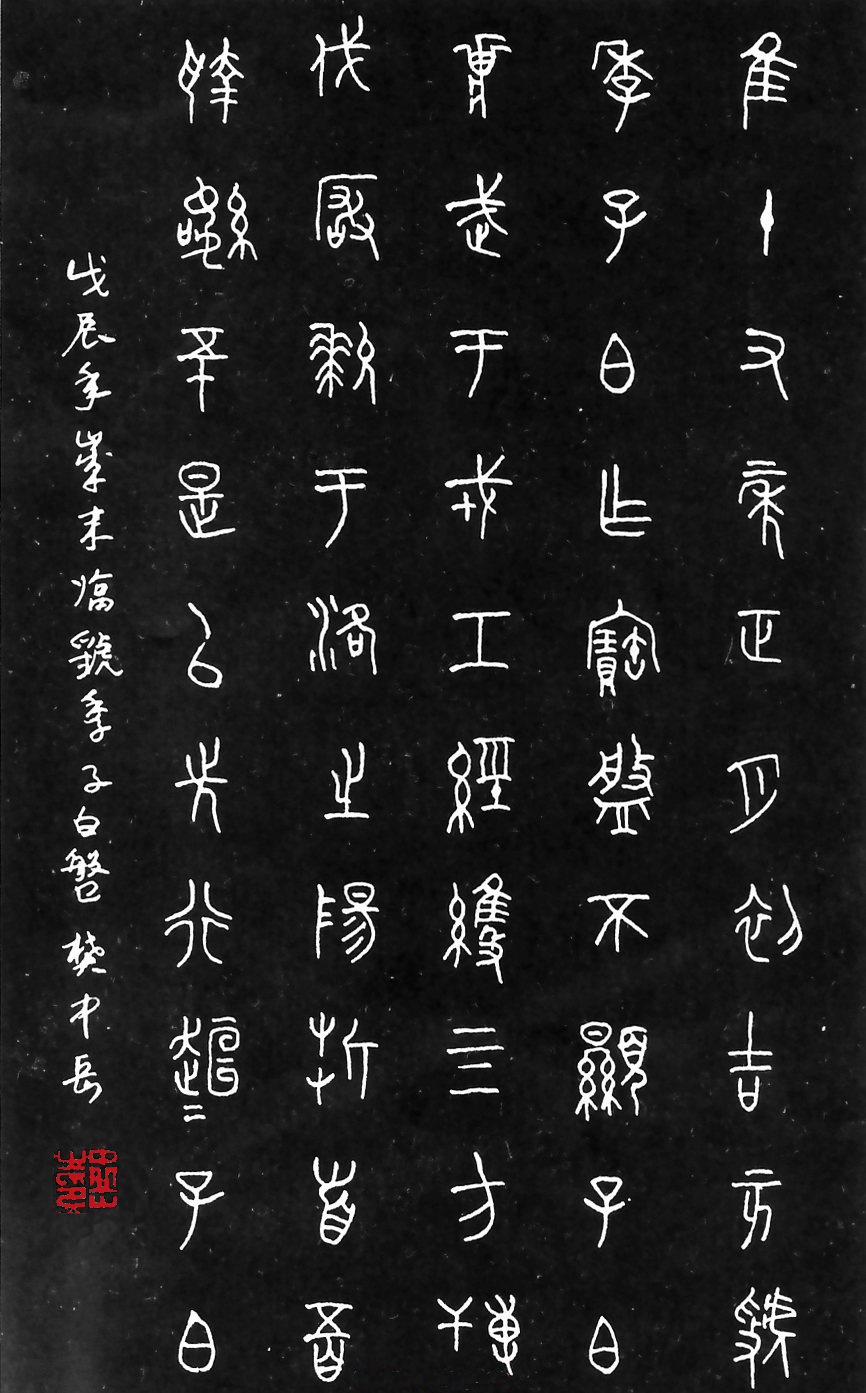 隹十又二年正月初吉丁亥虢
季子白乍寶盤不顯子白
𤕌武于戎工經維四方搏
伐玁狁于洛之陽折首五百
執訊五十是以先行趄=子白
戊辰年歲末臨虢季子白盤 樊中岳